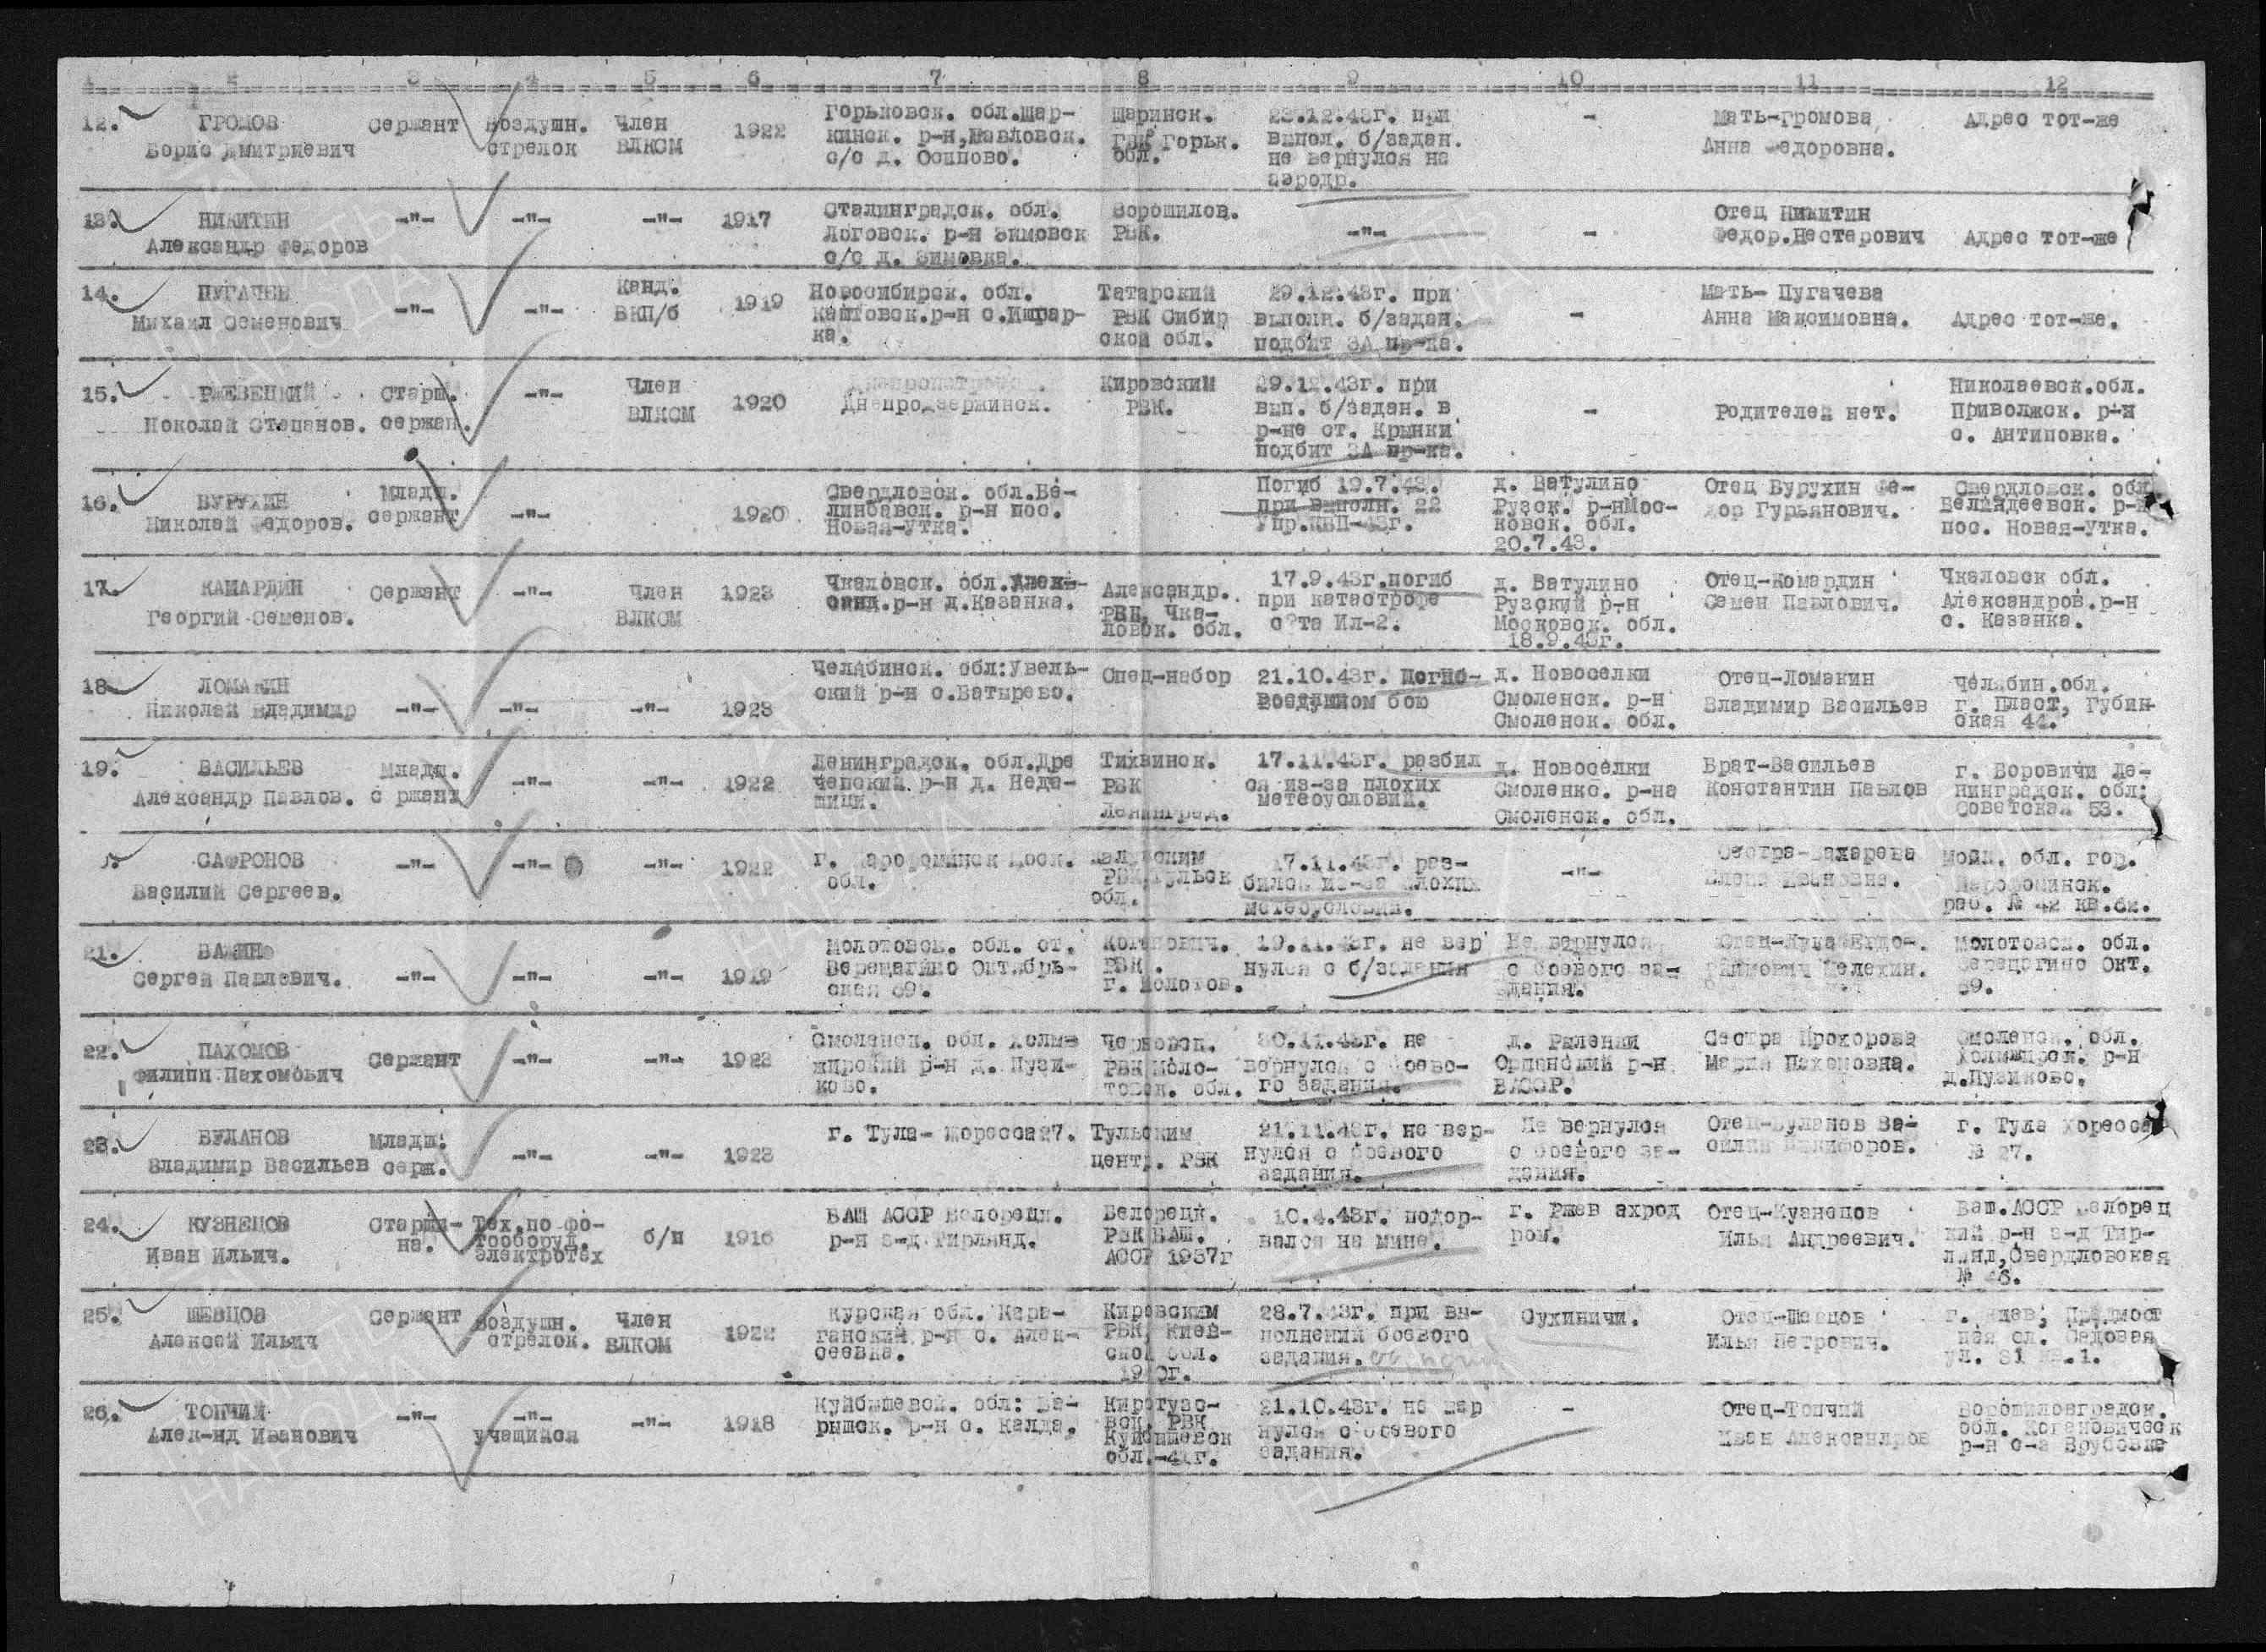 5 6 7 8 9 10 11 12
12. ГРОМОВ Сержант Воздушн. Член 1922 Горьковск. обл.Шар- Шаринск. 23.12.43г. при - Мать-Громова Адрес тот-же
Борис Дмитриевич стрелок ВЛКСМ кинск. р-н,Павловск. РВК Горьк. выпол. б/задан. Анна Федоровна.
с/с д. Осипово. обл. не вернулся на
аэродр.
13. НИКИТИН -"- -"- -"- 1917 Сталинградск. обл. Ворошилов. -"- - Отец Никитин Адрес тот-же
Александр Федоров Логовск. р-н Зимовск РВК. Федор.Нестерович
с/с д. Зимовка.
14. ПУГАЧЕВ -"- -"- Канд. 1919 Новосибирск. обл. Татарский 29.12.43г. при - Мать- Пугачева Адрес тот-же.
Михаил Семенович ВКП/б р-н РВК Сибир выполн. б/задан. Анна Максимовна.
ка. ской обл. подбит ЗА пр-ка.
15. РЖЕВЕЦКИЙ Старш. -"- Член 1920 Кировский 29.12.43г. при - Родителей нет. Николаевск.обл.
Николай Степанов. сержан. ВЛКСМ Днепродзержинск. РВК. вып. б/задан. в Приволжск. р-н
р-не ст. Крынки с. Антиповка.
подбит ЗА пр-ка.
16. БУРУХИН Младш. -"- 1920 Свердловск. обл.Бе- Погиб 19.7.43. д. Ватулино Отец Бурухин Фе- Свердловск. обл
Николай Федоров. сержант линбавск. р-н пос. при выполн. 22 Рузск. р-нМос- дор Гурьянович. Беландеевск. р-н
Новая-утка. Упр.КБП-43г. ковск. обл. пос. Новая-Утка.
20.7.43.
17. КАМАРДИН Сержант -"- Член 1923 Чкаловск. обл.Алек- Александр. 17.9.43г.погиб д. Ватулино Отец-Комардин Чкаловск обл.
Георгий Семенов. ВЛКСМ санд.р-н д.Казанка. РВК, Чка- при катастрофе Рузский р-н Семен Павлович. Александров.р-н
ловск. обл. с-та Ил-2. Московск. обл. с. Казанка.
18.9.43г.
18 ЛОМАКИН -"- -"- -"- 1923 Челябинск. обл:Увель- Спец-набор 21.10.43г. Погиб- д. Новоселки Отец-Ломакин Челябин.обл.
Николай Владимир ский р-н с.Батырево. воздушном бою Смоленск. р-н Владимир Васильев г. Пласт, Губин-
Смоленск. обл. ская 44.
19. ВАСИЛЬЕВ Младш. -"- -"- 1922 Ленинградск. обл.Дре Тихвинск. 17.11.43г. разбил д. Новоселки Брат-Васильев г. Боровичи Ле-
Александр Павлов. с ржант чепский р-н д. Неда- РВК ся из-за плохих Смоленкс. р-на Константин Павлов нинградск. обл:
шици. Ленинград. метеоусловий. Смоленск. обл. Советская 53.
САФРОНОВ -"- -"- -"- 1922 г. Нарофоминск Моск. 17.11.43г. раз- -"- Сестра-Захарова обл. гор.
Василий Сергеев. обл. РВК,Тульск бился из-за плохих Елена Ивановна. Нарофоминск.
обл. метеусловий. раб. № 42 кв.62.
21. ВАЖИН -"- -"- -"- 1919 Молотовск. обл. ст. Коганович. 19.11.43г. не вер Не вернулся Молотовск. обл.
Сергей Павлович. Верещагино Октябрь- РВК. нулся с б/задания с боевого за- Мелехин. Верещагино Окт.
ская 69. г. Молотов. дания. 69.
22. ПАХОМОВ Сержант -"- -"- 1923 Смоленск. обл. Холм- Черновск. 30.11.43г. не д. Рыленки Сестра Прохорова Смоленск. обл.
Филипп Пахомович жирский р-н д. Пузи- РВК Моло- вернулся с боево- Оршанский р-н Мария Пахомовна. Холмжирск. р-н
ково. товск. обл. го задания. БССР. д.Пузиково.
23. БУЛАНОВ Младш. -"- -"- 1923 г. Тула- Жоресса27. Тульским 21.11.43г. не вер- Не вернулся Отец-Буланов Ва- г. Тула
Владимир Васильев серж. центр. РВК нулся с боевого с боевого за- силий № 27.
задания. дания.
24. КУЗНЕЦОВ Старши- Тех.по фо- б/п 1916 БАШ АССР Белорецк. Белорецк. 10.4.43г. подор- г. Ржев аэрод Отец-Кузнецов Баш.АССР Белорец
Иван Ильич. на. тооборуд. р-н з-д Тирлянд. РВК БАШ. вался на мине. ром. Илья Андреевич. кий р-н з-д Тир-
электротех АССР 1937г лянд,Свердловская
№ 46.
25. ШЕВЦОВ Сержант Воздушн. Член 1922 Курская обл. Кара- Кировским 28.7.43г. при вы- Сухиничи. Отец-Шевцов г. Киев,
Алексей Ильич стрелок. ВЛКСМ ганский р-н с. Алек- РВК, Киев- полнении боевого Илья Петрович. сл. Садовая
сеевка. ской обл. задания. ул.
26. ТОПЧИЙ -"- -"- -"- 1918 Куйбышевск. обл: Ба- 21.10.43г. не вер - Отец-Топчий Ворошиловградск.
Алек-нд Иванович учащийся рышск. р-н с. Калда. вск. РВК нулся с боевого Иван Александров обл. Когановическ
Куйбышевск задания. р-н с-з Врубовка
обл.